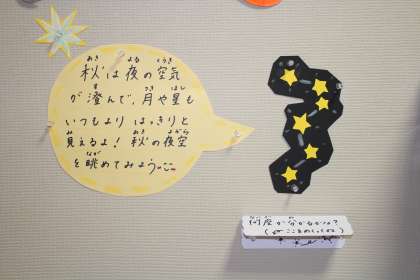 秋は夜の空気
が澄んで、月や星も
いつもより はっきりと
見えるよ！ 秋の夜空
を眺めてみよう
何座か分かるかな？